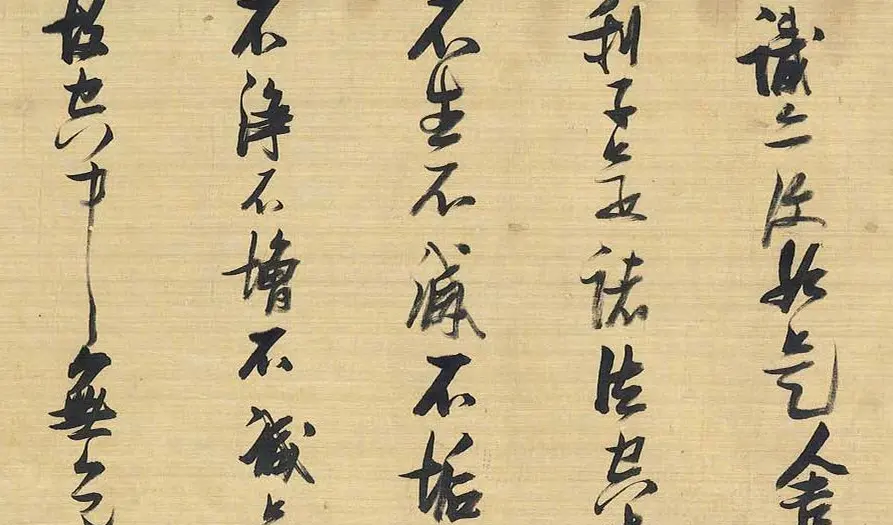 識亦復如是舍
利子是諸法空
不生不滅不垢
不淨不增不減是
故空中無色